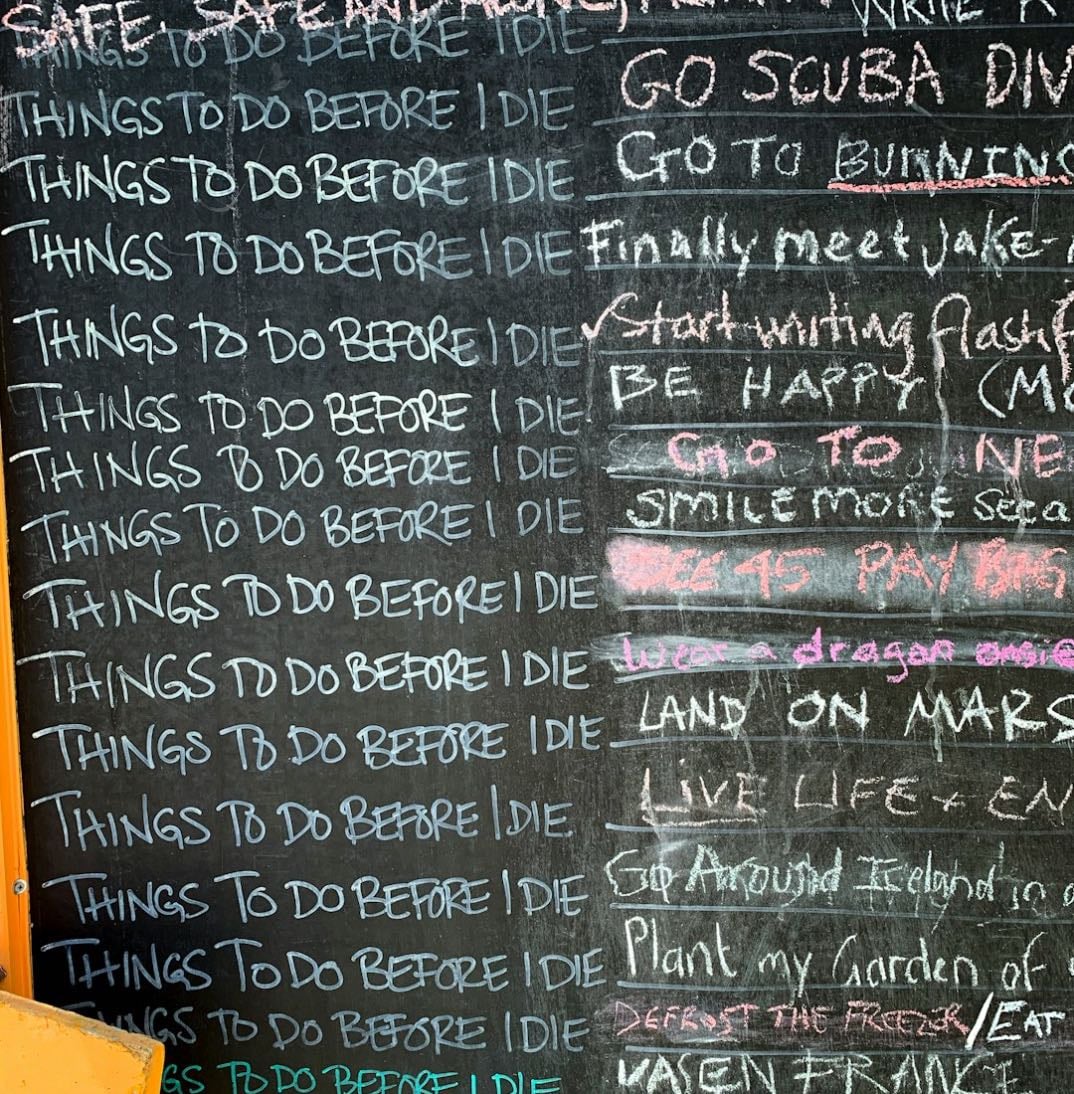 SAFE, SAFE AND
WRITE A
THINGS TO DO BEFORE I DIE
THINGS TO DO BEFORE I DIE GO SCUBA DIV
THINGS TO DO BEFORE I DIE GO TO BURNING
THINGS TO DO BEFORE I DIE Finally meet Jake-
THINGS TO DO BEFORE I DIE Start writing flash
THINGS TO DO BEFORE I DIE BE HAPPY (MO
THINGS TO DO BEFORE I DIE GO TO NE
THINGS TO DO BEFORE I DIE SMILE MORE
THINGS TO DO BEFORE I DIE 45 PAY
THINGS TO DO BEFORE I DIE Wear a dragon onsie
THINGS TO DO BEFORE I DIE LAND ON MARS
THINGS TO DO BEFORE I DIE LIVE LIFE + EN
THINGS TO DO BEFORE I DIE Go Around Iceland in a
THINGS TO DO BEFORE I DIE Plant my Garden of
NGS TO DO BEFORE I DIE DEFROST THE FREEZER/EAT
GS TO DO BEFORE I DIE